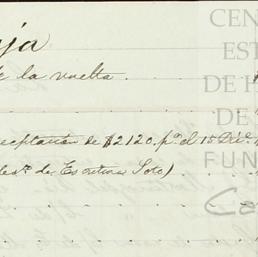 ja
de la vuelta.
ceptación de $2120. p.ª el 15 Dic.e
des.to de Escritura Soto)
CEN
EST
DE H
DE S
FUN